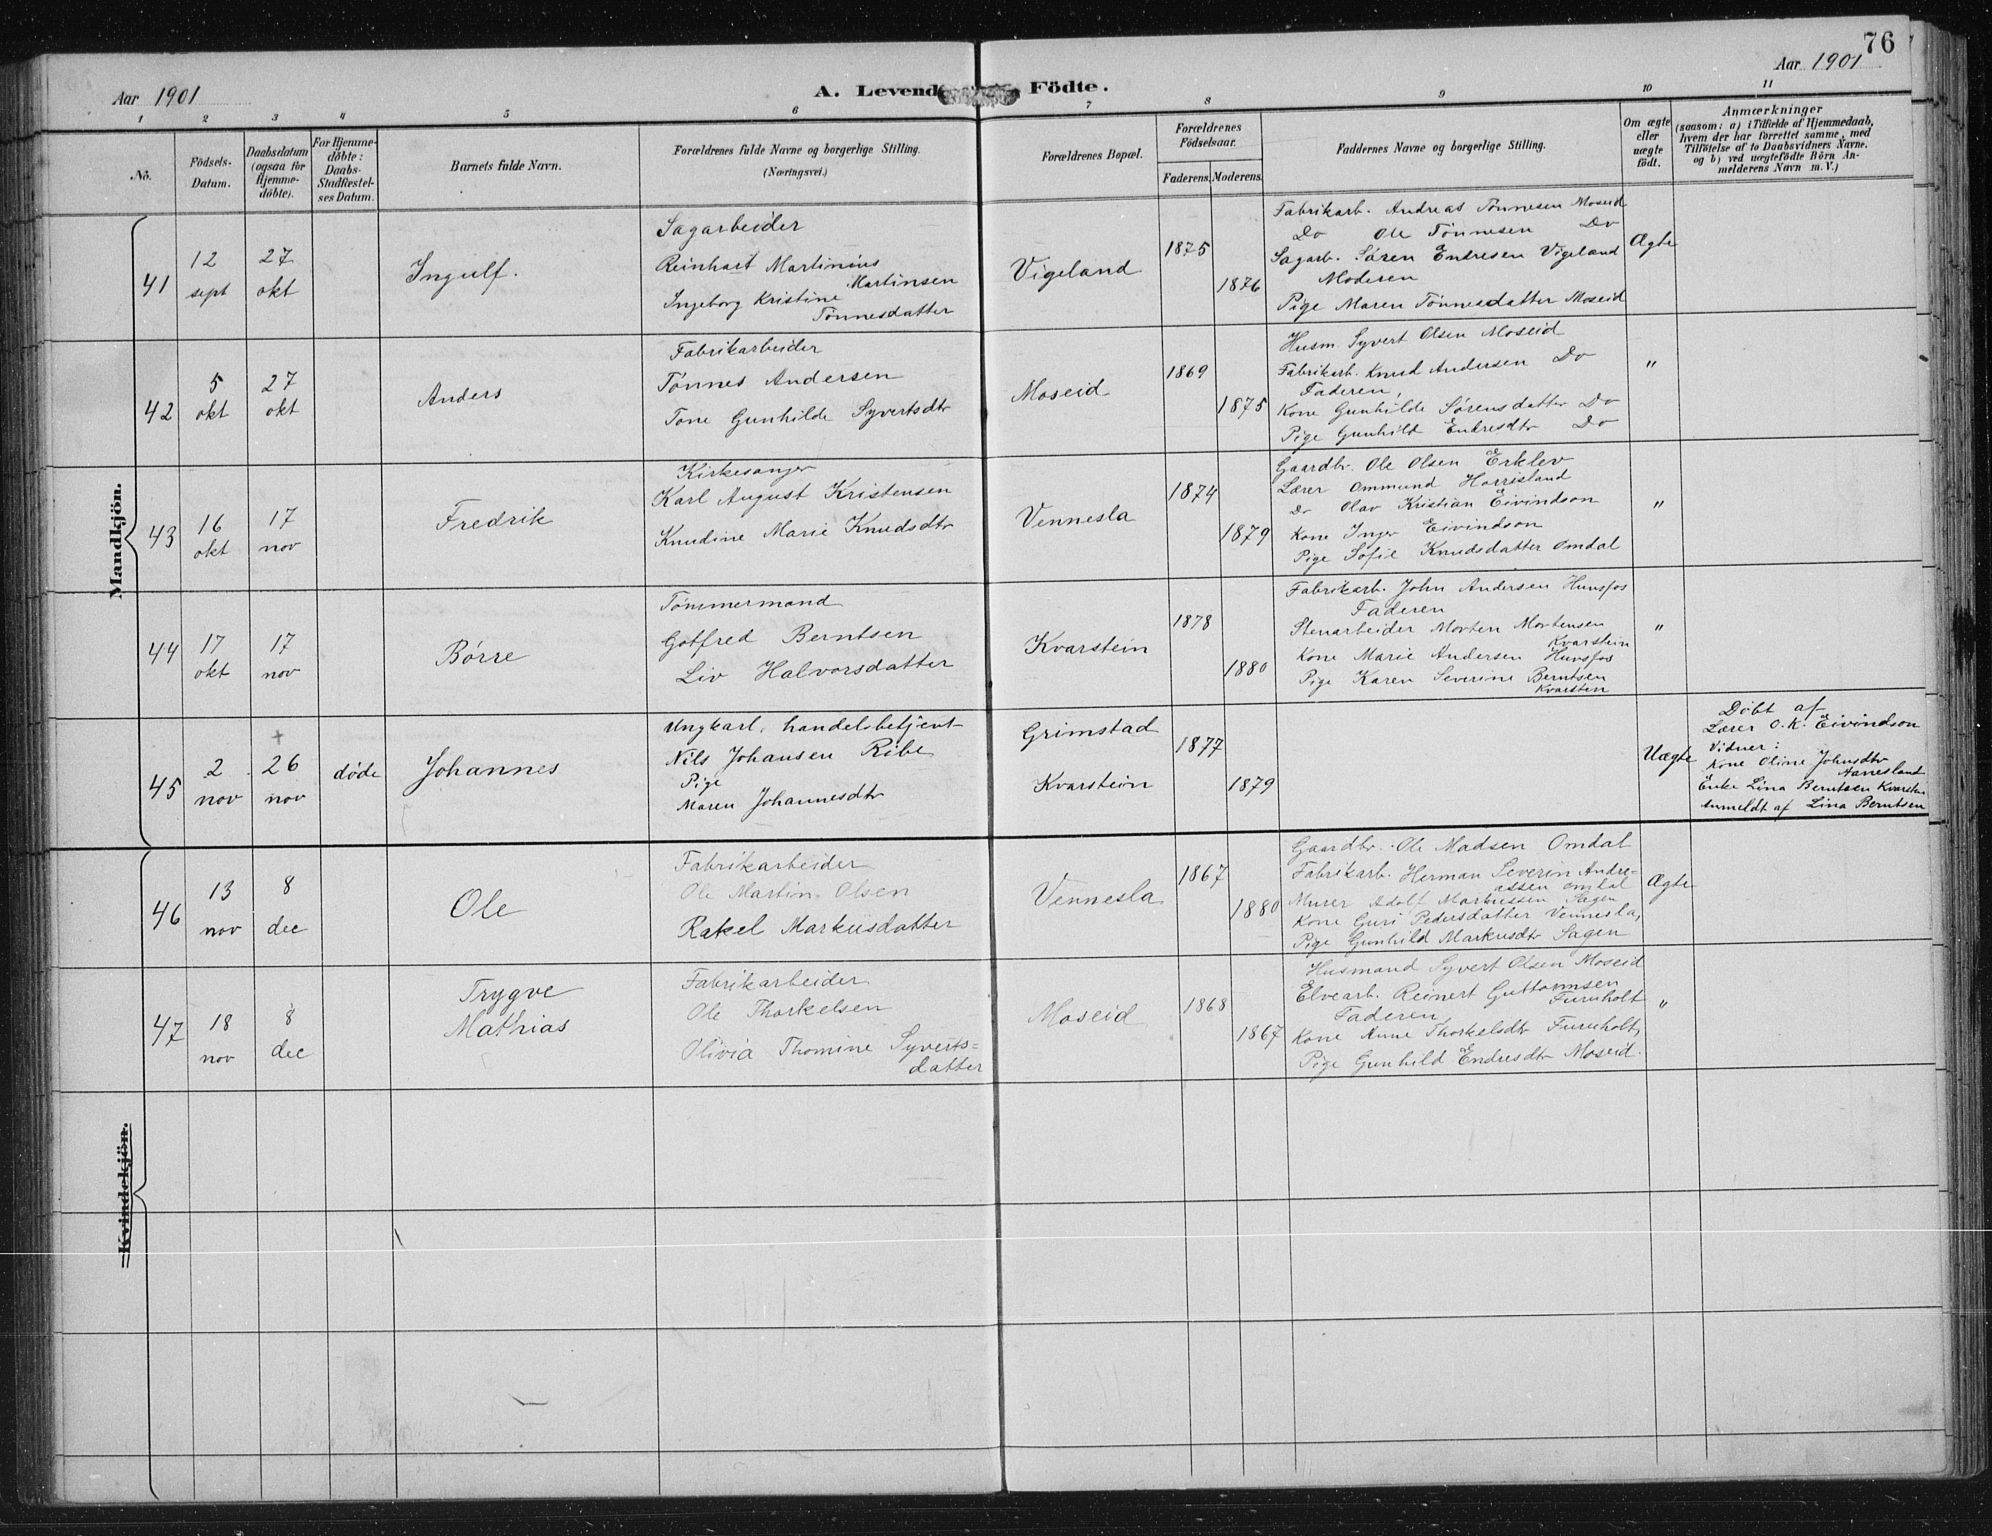 76
Aar 1901
A. Levende Födte.
Aar 1901
1 2 3 4 5 6 7 8 9 10 11
No.
Födsels-
Datum.
Daabsdatum
(ogsaa for
Hjemme-
döbte).
For Hjemme-
döbte:
Daabs-
Stadfæstel-
ses Datum.
Barnets fulde Navn.
Forældrenes fulde Navne og borgerlige Stilling.
(Næringsvei.)
Forældrenes Bopæl.
Forældrenes
Födselsaar.
Faderens. Moderens.
Faddernes Navne og borgerlige Stilling.
Om ægte
eller
uægte
födt.
Anmærkninger
(saasom: a) i Tilfælde af Hjemmedaab,
hvem der har forrettet samme, med
Tilföielse af to Daabsvidners Navne.
og b) ved uægtefödte Börn An-
melderens Navn m. V.)
Mandkjön.
41
12
sept
27
okt
Ingulf.
Sagarbeider
Reinhart Martinius
Martinsen
Ingeborg Kristine
Tønnesdatter
Vigeland
1875
1876
Fabrikarb. Andreas Tønnesen Moseid
Do Ole Tønnesen Do
Sagarb. Søren Endresen Vigeland
Moderen
Pige Maren Tønnesdatter Moseid
Ægte
42
5
okt
27
okt
Anders
Fabrikarbeider
Tønnes Andersen
Tone Gunhilde Syvertsdtr
Moseid
1869
1875
Husm. Syvert Olsen Moseid
Fabrikarb. Knud Andersen Do
Faderen,
Kone Gunhilde Sørensdatter Do
Pige Gunhild Endresdtr Do
"
43
16
okt
17
nov
Fredrik
Kirkesanger
Karl August Kristensen
Knudine Marie Knudsdtr
Vennesla
1874
1879
Gaardbr. Ole Olsen Erklev
Lærer Ommund Horrisland
Do Olav Kristian Eivindson
Kone Inger Eivindson
Pige Sofie Knudsdatter Omdal
"
44
17
okt
17
nov
Børre
Tømmermand
Gotfred Berntsen
Liv Halvorsdatter
Kvarstein
1878
1880
Fabrikarb. John Andersen Hunsfos
Faderen
Stenarbeider Morten Mortensen
Kvarstein
Kone Marie Andersen Hunsfos
Pige Karen Severine Berntsen
Kvarsten
"
45
2
nov
+
26
nov
døde
Johannes
Ungkarl, handelsbetjent
Nils Johansen Ribe
Pige
Maren Johannesdtr
Grimstad
Kvarstein
1877
1879
Uægte
Døbt af
Lærer O. K. Eivindson
Vidner:
Kone Oline Johnsdtr
Aanesland
Enke Lina Berntsen Kvarsten
Anmeldt af Lina Berntsen
Kvindekjön.
46
13
nov
8
dec
Ole
Fabrikarbeider
Ole Martin Olsen
Rakel Markusdatter
Vennesla
1867
1880
Gaardbr. Ole Madsen Omdal
Fabrikarb. Herman Severin Andre-
assen Omdal
Murer Adolf Markussen Sagen
Kone Guri Pedersdatter Vennesla,
Pige Gunhild Markusdtr Sagen
Ægte
47
18
nov
8
dec
Trygve
Mathias
Fabrikarbeider
Ole Thorkelsen
Olivia Thomine Syverts=
datter
Moseid
1868
1867
Husmand Syvert Olsen Moseid
Elvearb. Reinert Guttormsen
Furuholt
Faderen,
Kone Anne Thorkelsdtr Furuholt,
Pige Gunhild Endresdtr Moseid.
"